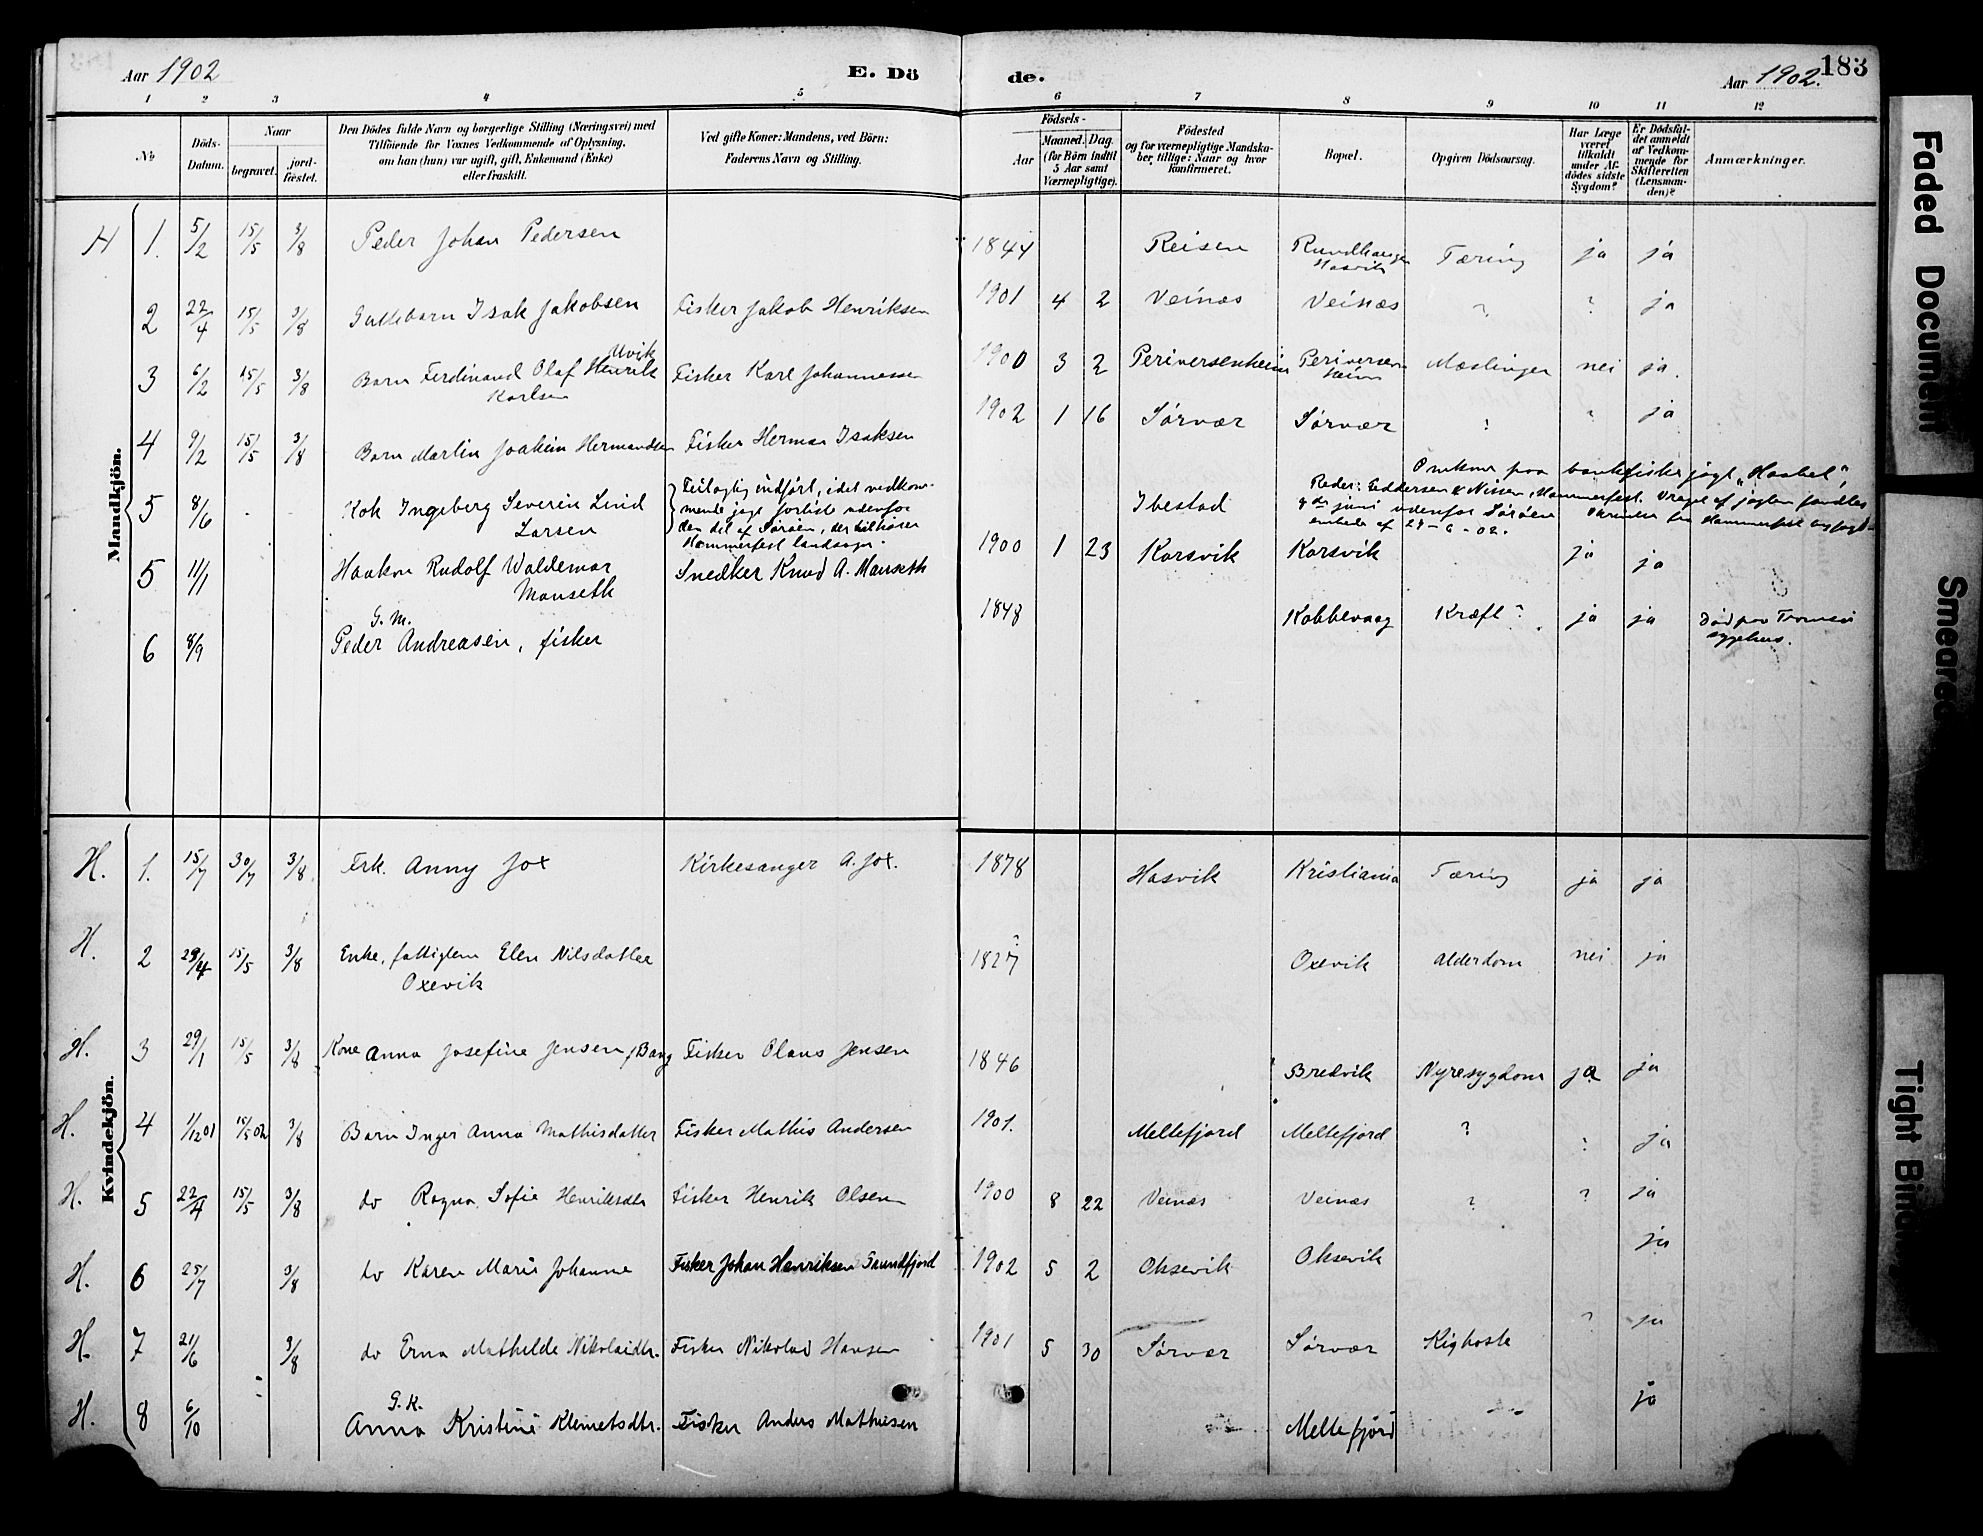 Aar 1902
E. Dö
de.
Aar 1902.
183
1 2 3 4 5 6 7 8 9 10 11 12
№
Döds-
Datum.
Naar
begravet.
jord-
fæstet.
Den Dödes fulde Navn og borgerlige Stilling (Næringsvei) med
Tilföiende for Voxnes Vedkommende af Oplysning,
om han (hun) var ugift, gift, Enkemand (Enke)
eller fraskilt.
Ved gifte Koner: Mandens, ved Börn:
Faderens Navn og Stilling.
Födsels-
Aar
Maaned. Dag.
(for Börn indtil
5 Aar samt
Værnepligtige).
Födested
og for værnepligtige Mandska-
ber tillige: Naar og hvor
konfirmeret.
Bopæl.
Opgiven Dödsaarsag.
Har Læge
været
tilkaldt
under Af-
dödes sidste
Sygdom?
Er Dödsfal-
det anmeldt
af Vedkom-
mende for
Skifteretten
(Lensman-
den)?
Anmærkninger.
Mandkjön.
H 1. 5/2 15/5 3/8 Peder Johan Pedersen 1844 Reisen Hasvik Tæring ja ja
2 22/4 15/5 3/8 Isak Jakobsen Fisker Jakob Henriksen 1901 4 2 Veinæs Veinæs ? ? ja
3 6/2 15/5 3/8 Barn Ferdinand Olaf Henrik Ulvik
Karlsen Fisker Karl Johannessen 1900 3 2 Mæslinger nei ja.
4 9/2 15/5 3/8 Barn Martin Joakim Hermandsen Fisker Herman Isaksen 1902 1 16 Sørvær Sørvær ? ? ja
5 8/6 Kok Ingeberg Severin Lind
Larsen
Feilagtig indført, idet vedkom-
mende jagt forliste udenfor
den del af Sørøen, der tilhører
Hammerfest landsogn.
Ibestad
Omkom paa bankfiskejagt „Haabet",
Reder: Feddersen & Nissen, Hammerfest. Vraget af jagten fandtes
9de juni udenfor Sørøen
24-6-02.
5 11/1 Haakon Rudolf Waldemar
Manseth Snedker Knud A. Manseth 1900 1 23 Korsvik Korsvik ja ja
G. M.
6 8/9 Peder Andreasen, fisker 1848 Kobbevaag Kræft? ja ja død paa Tromsø
sygehus.
Kvindekjön.
H. 1. 15/7 30/7 3/8 Frk. Anny Jox Kirkesanger A. Jox. 1878 Hasvik Kristiania Tæring ja ja
H. 2 29/4 15/5 3/8 Enke, fattiglem Elen Nilsdatter
Oxevik 1827 ? Oxevik Alderdom nei ja
H. 3 29/1 15/5 3/8 Kone Anna Josefine Jensen, f. Bang Fisker Olaus Jensen 1846 ? Bredvik Nyresygdom ja ja
H. 4 1/12 01 15/5 02 3/8 Barn Inger Anna Mathisdatter Fisker Mathis Andersen 1901. Meltefjord Meltefjord ? ? ja
H. 5 22/4 15/5 3/8 do Ragna Sofie Henriksdtr Fisker Henrik Olsen 1900 8 22 Veinæs Veinæs ? ? ja
H. 6 25/7 3/8 do Karen Marie Johanne Fisker Johan Henriksen 1902 5 2 Oksevik Oksevik ja
H. 7 21/6 3/8 do Erna Mathilde Nikolaidtr. Fisker Nikolai Hansen 1901 5 30 Sørvær Sørvær Kighoste ? ja
G. K.
H. 8 6/10 Anna Kristine Klemetsdtr. Fisker Anders Mathisen Meltefjord ja
Faded Document
Smeared
Tight Bind